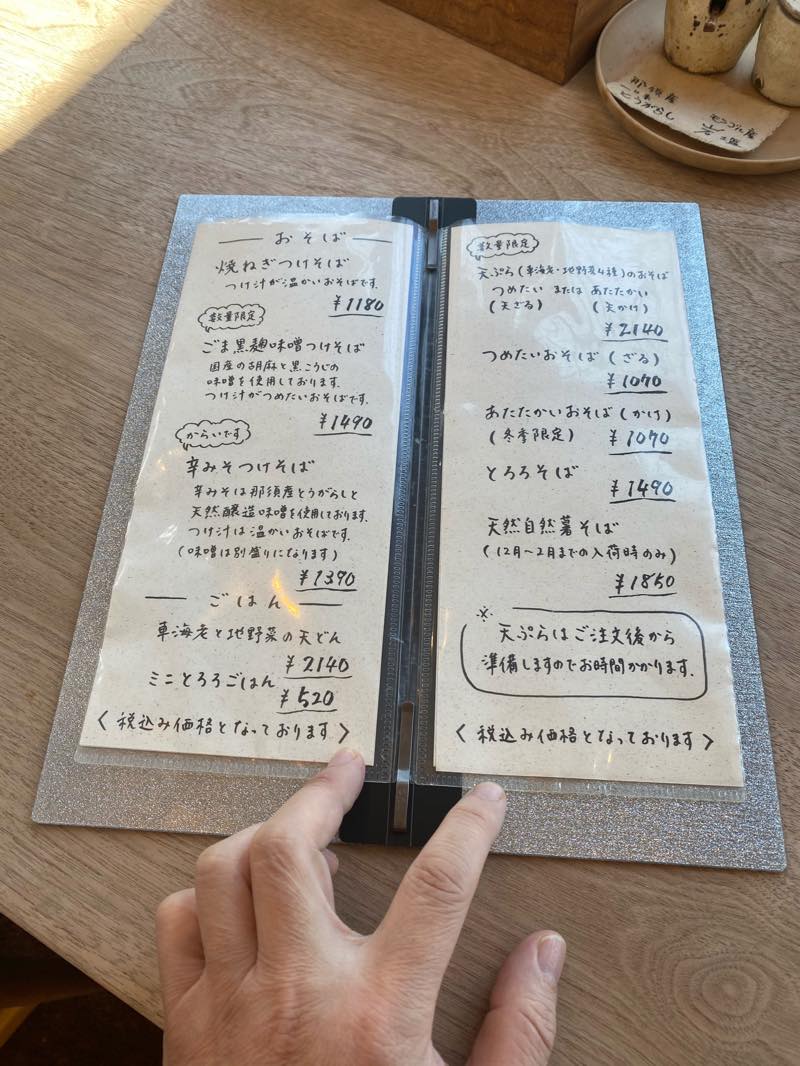 おそば
焼ねぎつけそば
つけ汁が温かいおそばです。
¥1180
数量限定
ごま黒麹味噌つけそば
国産の胡麻と黒こうじの
味噌を使用しております。
つけ汁がつめたいおそばです。
¥1490
からいです
辛みそつけそば
辛みそは那須産とうがらしと
天然醸造味噌を使用しております。
つけ汁は温かいおそばです。
(味噌は別盛りになります)
¥1390
ごはん
車海老と地野菜の天どん
¥2140
ミニとろろごはん
¥520
〈税込み価格となっております〉
数量限定
天ぷら(車海老・地野菜4種)のおそば
つめたい または あたたかい
(天ざる) (天かけ)
¥2140
つめたいおそば(ざる)
¥1070
あたたかいおそば(かけ)
(冬季限定) ¥1070
とろろそば
¥1490
天然自然薯そば
(12月〜2月までの入荷時のみ)
¥1850
※
天ぷらはご注文後から
準備しますのでお時間かかります。
〈税込み価格となっております〉
那須産
一本
とうがらし
モンゴル産
岩塩